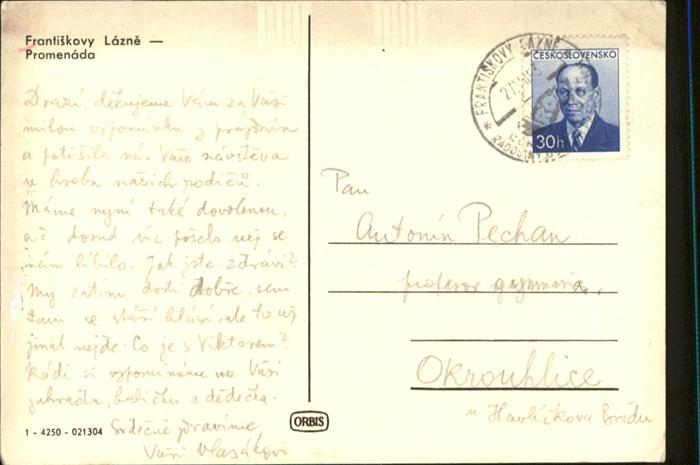 Františkovy Lázně —
Promenáda
Drazí, děkujeme Vám za Vaši
milou vzpomínku z prázdnin
a potěšila nás Vaše návštěva
u hrobu našich rodičů.
Máme nyní také dovolenou,
ač dosud víc pršelo než se
nám líbilo. Jak jste zdrávi?
My zatím dosti dobře, sem
tam se stáří hlásí, ale to už
jinak nejde. Co je s Viktorem?
Rádi si vzpomínáme na Vaši
zahradu, babičku a dědečka.
Srdečně zdravíme
Vaši Vlasákovi
1 - 4250 - 021304
ORBIS
FRANTIŠKOVY LÁZNĚ
ČESKOSLOVENSKO
30h
Pan
Antonín Pechan
profesor gymnasia,
Okrouhlice
u Havlíčkova Brodu